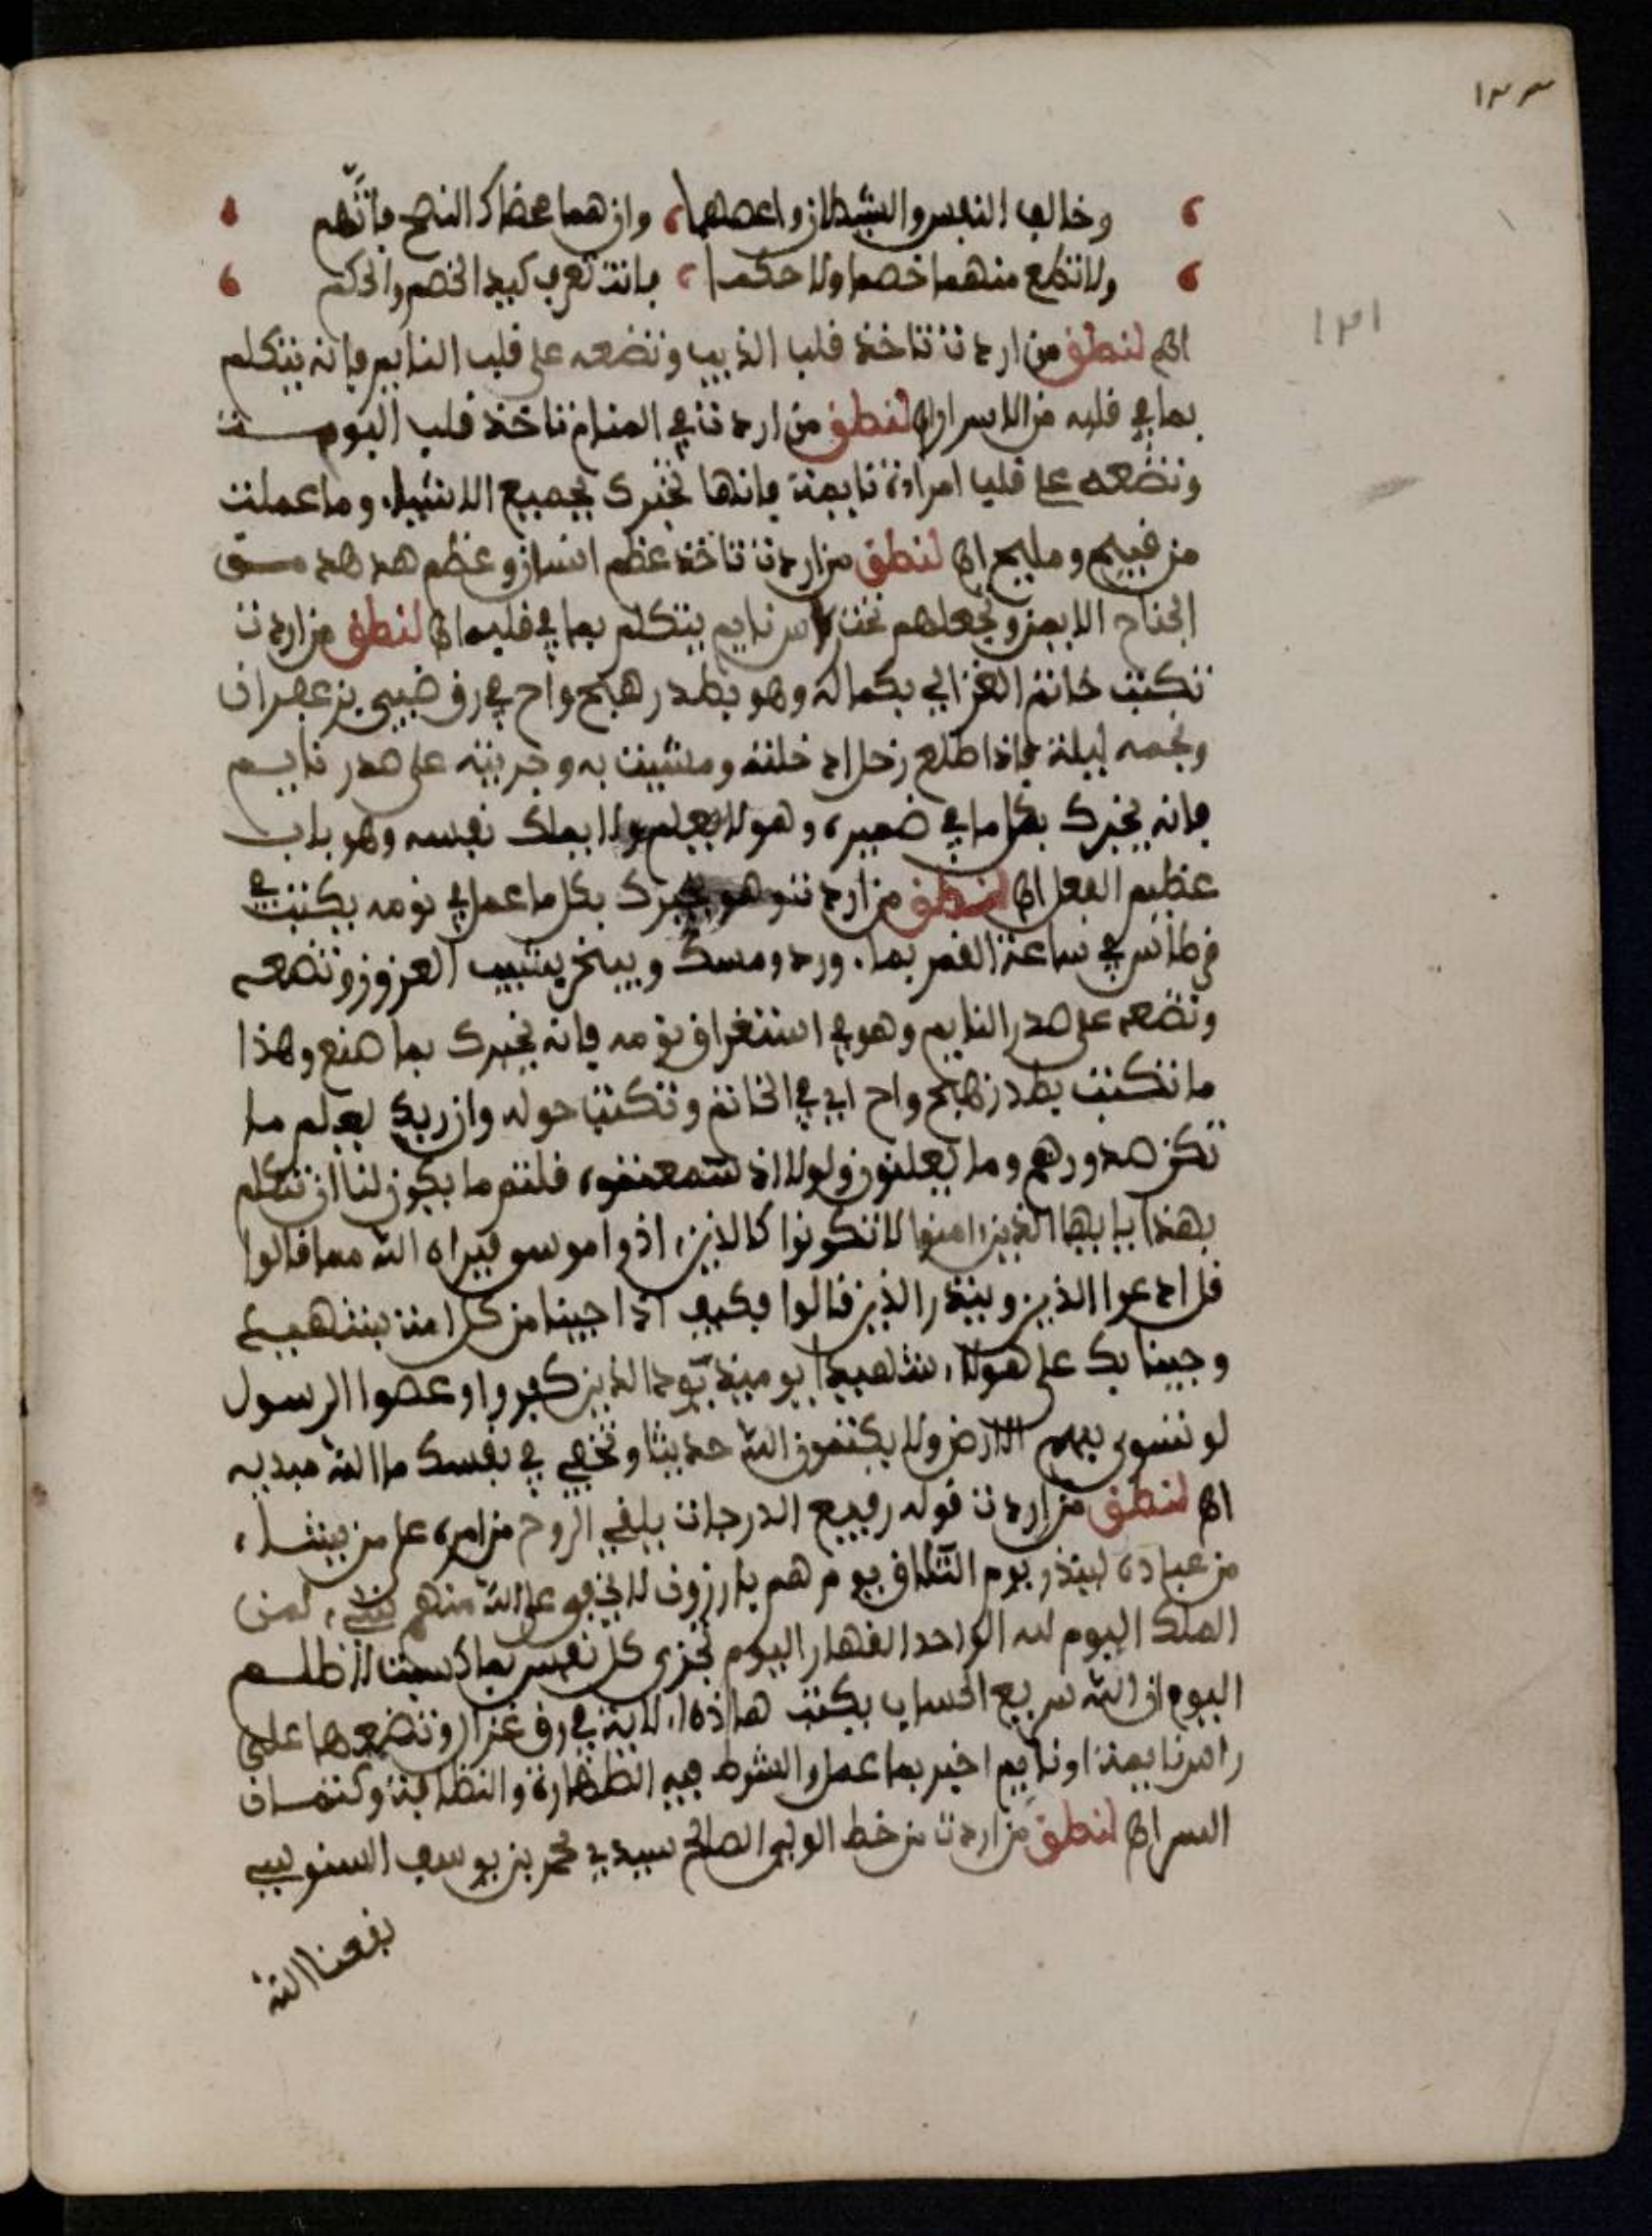 ١٣٣
وخالف النفس والشيطان واعصهما وان هما محضاك النصح فاتّهم
ولا تطع منهما خصما ولا حكما فانت تعرف كيد الخصم والحكم
١٣١
اى لنطق من اردت تاخذ قلب الذيب وتضعه على قلب النايم فانه يتكلم
بما في قلبه من الاسرار اى لنطق من اردت في المنام تاخذ قلب البومت
وتضعه على قلب امراة نايمة فانها تخبرك بجميع الاشياء وما عملت
من قبيح ومليح اى لنطق من اردت تاخذ عظم انسان وعظم هدهد من
الجناح الايمن وتجعلهم تحت راس نايم يتكلم بما في قلبه اى لنطق من اردت
تكتب خاتم الغزالي بكماله وهو بطد زهج واح في رق ضبي بزعفران
ونجمه ليلة فاذا طلع زحل ادخلته ومشيت به وجربته على صدر نايم
فانه يخبرك بكل ما في ضميره وهو لا يعلم ولا يملك نفسه وهو باب
عظيم الفعل اى لنطق من اردت وهو يخبرك بكل ما عمل في نومه يكتب في
قرطاس في ساعة القمر بماء ورد ومسك ويبخر بشيب العزوز وتضعه
وتضعه على صدر النايم وهو في استغراق نومه فانه يخبرك بما صنع وهذا
ما تكتب بطد زهج واح اي في الخاتم وتكتب حوله وان ربك ليعلم ما
تكن صدورهم وما يعلنون ولولا اذ سمعتموه قلتم ما يكون لنا ان نتكلم
بهذا يايها الذين امنوا لا تكونوا كالذين اذوا موسى فبراه الله مما قالوا
قل ادعوا الذين وينذر الذين قالوا فكيف اذا جينا من كل امة بشهيد
وجينا بك على هولاء شهيدا يوميذ يود الذين كفروا وعصوا الرسول
لو تسوى بهم الارض ولا يكتمون الله حديثا وتخفي في نفسك ما الله مبديه
اى لنطق من اردت قوله رفيع الدرجات يلقي الروح من امره على من يشاء
من عباده لينذر يوم التلاق يوم هم بارزون لا يخفى على الله منهم شيء لمن
الملك اليوم لله الواحد القهار اليوم تجزى كل نفس بما كسبت لا ظلم
اليوم ان الله سريع الحساب يكتب هاذه الاية في رق غزال وتضعها على
راس نايمة او نايم اخبر بما عمل والشرط فيه الطهارة والنظافة وكتمان
السر اى لنطق من اردت من خط الولي الصالح سيدي محمد بن يوسف السنوسي
نفعنا الله